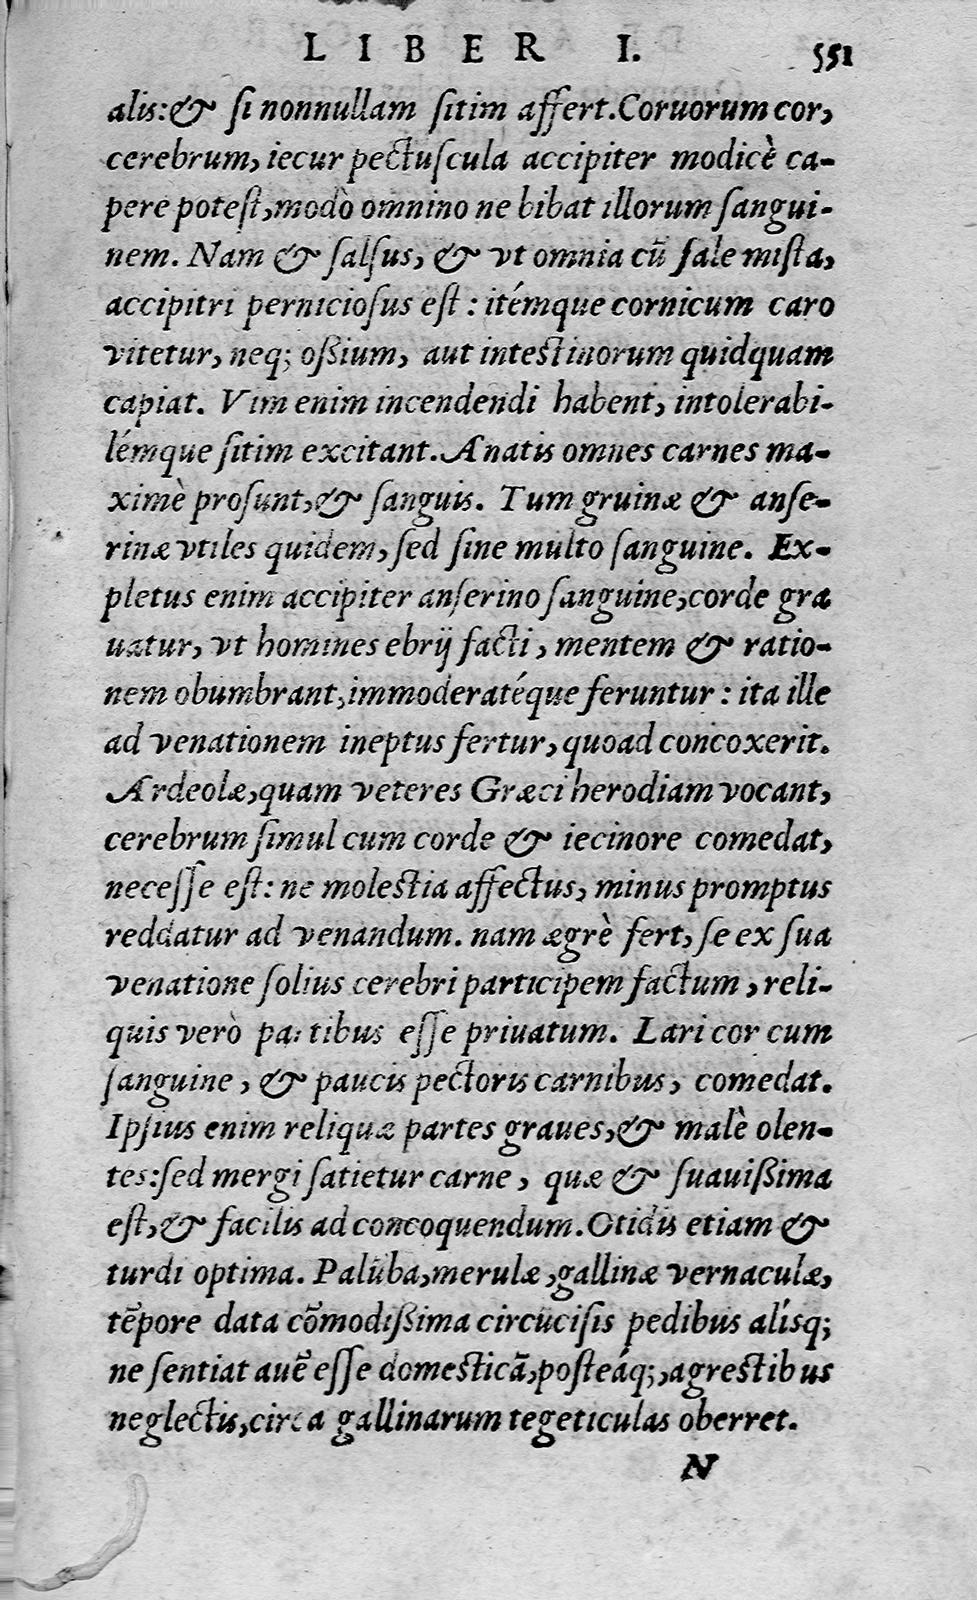 LIBER I. 551
alis:& ſi nonnullam ſitim affert.Coruorum cor,
cerebrum, iecur pectuſcula accipiter modicè ca-
pere poteſt,modò omnino ne bibat illorum ſangui-
nem. Nam & ſalſus, & vt omnia cū ſale miſta,
accipitri pernicioſus eſt : itémque cornicum caro
vitetur, neq; oßium, aut inteſtinorum quidquam
capiat. Vim enim incendendi habent, intolerabi-
lémque ſitim excitant. Anatis omnes carnes ma-
ximè proſunt,& ſanguis. Tum gruinæ & anſe-
rinæ vtiles quidem, ſed ſine multo ſanguine. Ex-
pletus enim accipiter anſerino ſanguine,corde gra
uatur, vt homines ebrij facti, mentem & ratio-
nem obumbrant,immoderatéque feruntur : ita ille
ad venationem ineptus fertur, quoad concoxerit.
Ardeolæ,quam veteres Græci herodiam vocant,
cerebrum ſimul cum corde & iecinore comedat,
neceſſe eſt: ne moleſtia affectus, minus promptus
reddatur ad venandum. nam ægrè fert, ſe ex ſua
venatione ſolius cerebri participem factum, reli-
quis verò partibus eſſe priuatum. Lari cor cum
ſanguine, & paucis pectoris carnibus, comedat.
Ipſius enim reliquæ partes graues,& malè olen-
tes:ſed mergi ſatietur carne, quæ & ſuauißima
eſt,& facilis ad concoquendum. Otidis etiam &
turdi optima. Palūba,merulæ,gallinæ vernaculæ,
tēpore data cōmodißima circūciſis pedibus alíſq;
ne ſentiat auē eſſe domeſticā,poſteáq;,agreſtibus
neglectis,circa gallinarum tegeticulas oberret.
N